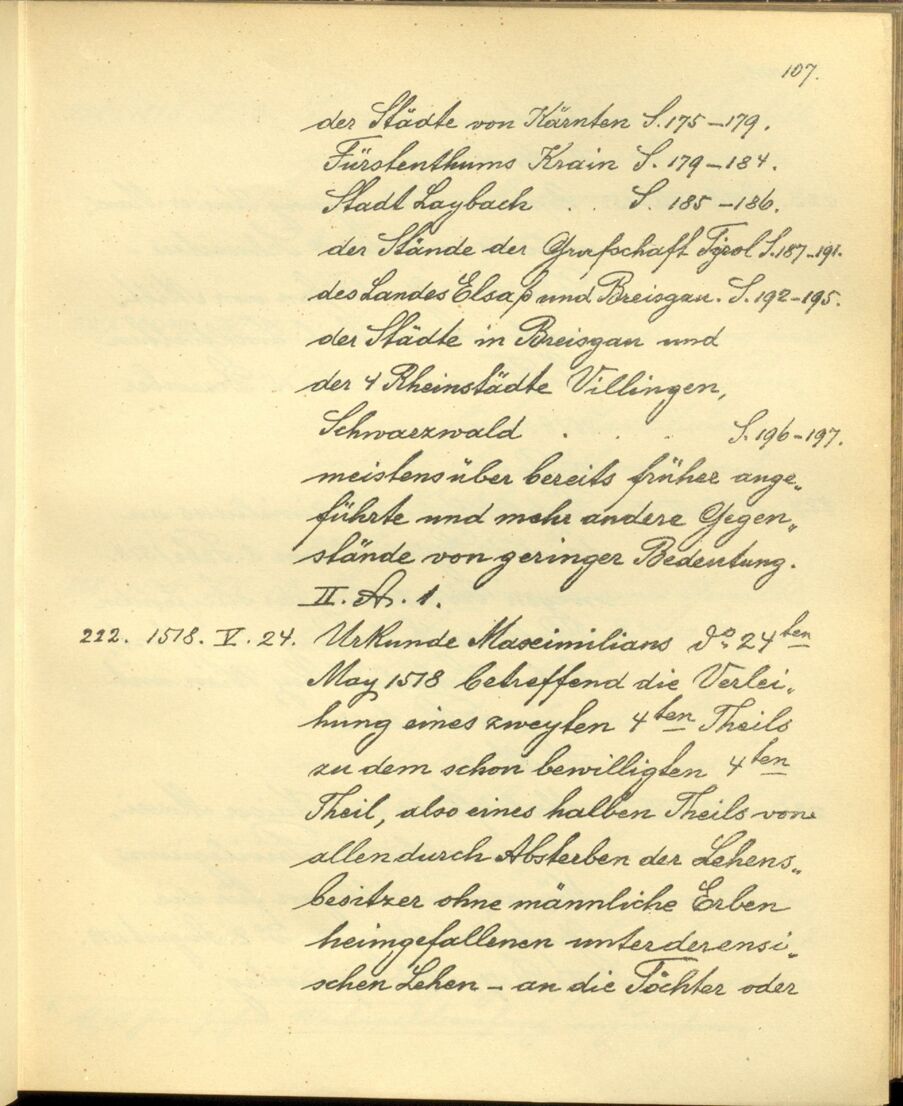 107.
der Städte von Kärnten S. 175–179.
Fürstenthums Krain S. 179–184.
Stadt Laybach . . S. 185–186.
der Stände der Grafschaft Tyrol S. 187–191.
des Landes Elsaß und Breisgau. S. 192–195.
der Städte in Breisgau und
der 4 Rheinstädte Villingen,
Schwarzwald . . . S. 196–197.
meistens über bereits früher ange„
führte und mehr andere Gegen„
stände von geringer Bedeutung.
II. A. 1.
222. 1518. V. 24. Urkunde Maximilians do. 24ten
May 1518 betreffend die Verlei„
hung eines zweyten 4ten Theils
zu dem schon bewilligten 4ten
Theil, also eines halben Theils von
allen durch Absterben der Lehens„
besitzer ohne männliche Erben
heimgefallenen unterderensi„
schen Lehen – an die Töchter oder